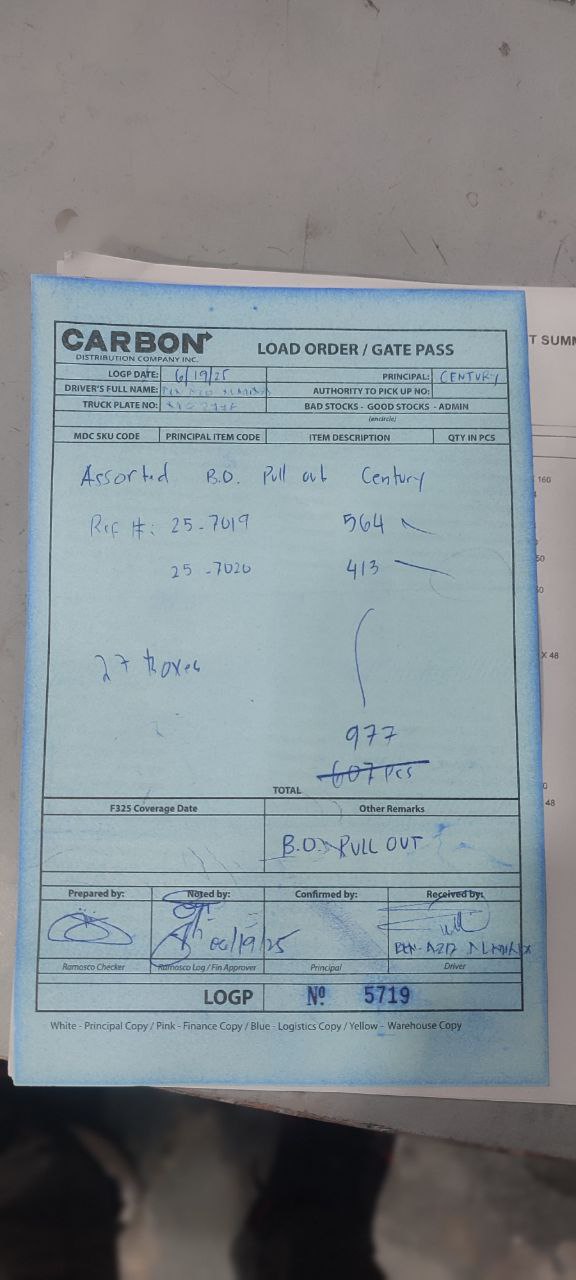 CARBON
DISTRIBUTION COMPANY INC.
LOAD ORDER / GATE PASS
T SUMM
LOGP DATE: 6/19/25 PRINCIPAL: CENTURY
DRIVER'S FULL NAME: AUTHORITY TO PICK UP NO:
TRUCK PLATE NO: BAD STOCKS - GOOD STOCKS - ADMIN
(encircle)
MDC SKU CODE PRINCIPAL ITEM CODE ITEM DESCRIPTION QTY IN PCS
Assorted B.O. Pull out Century
160
Ref #: 25-7019 564
25-7020 413
X 48
27 Boxes
977
607 PCS
TOTAL
48
F325 Coverage Date Other Remarks
B.O. PULL OUT
Prepared by: Noted by: Confirmed by: Received by:
06/19/25
Ramosco Checker Ramosco Log / Fin Approver Principal Driver
LOGP Nº 5719
White - Principal Copy / Pink - Finance Copy / Blue - Logistics Copy / Yellow - Warehouse Copy